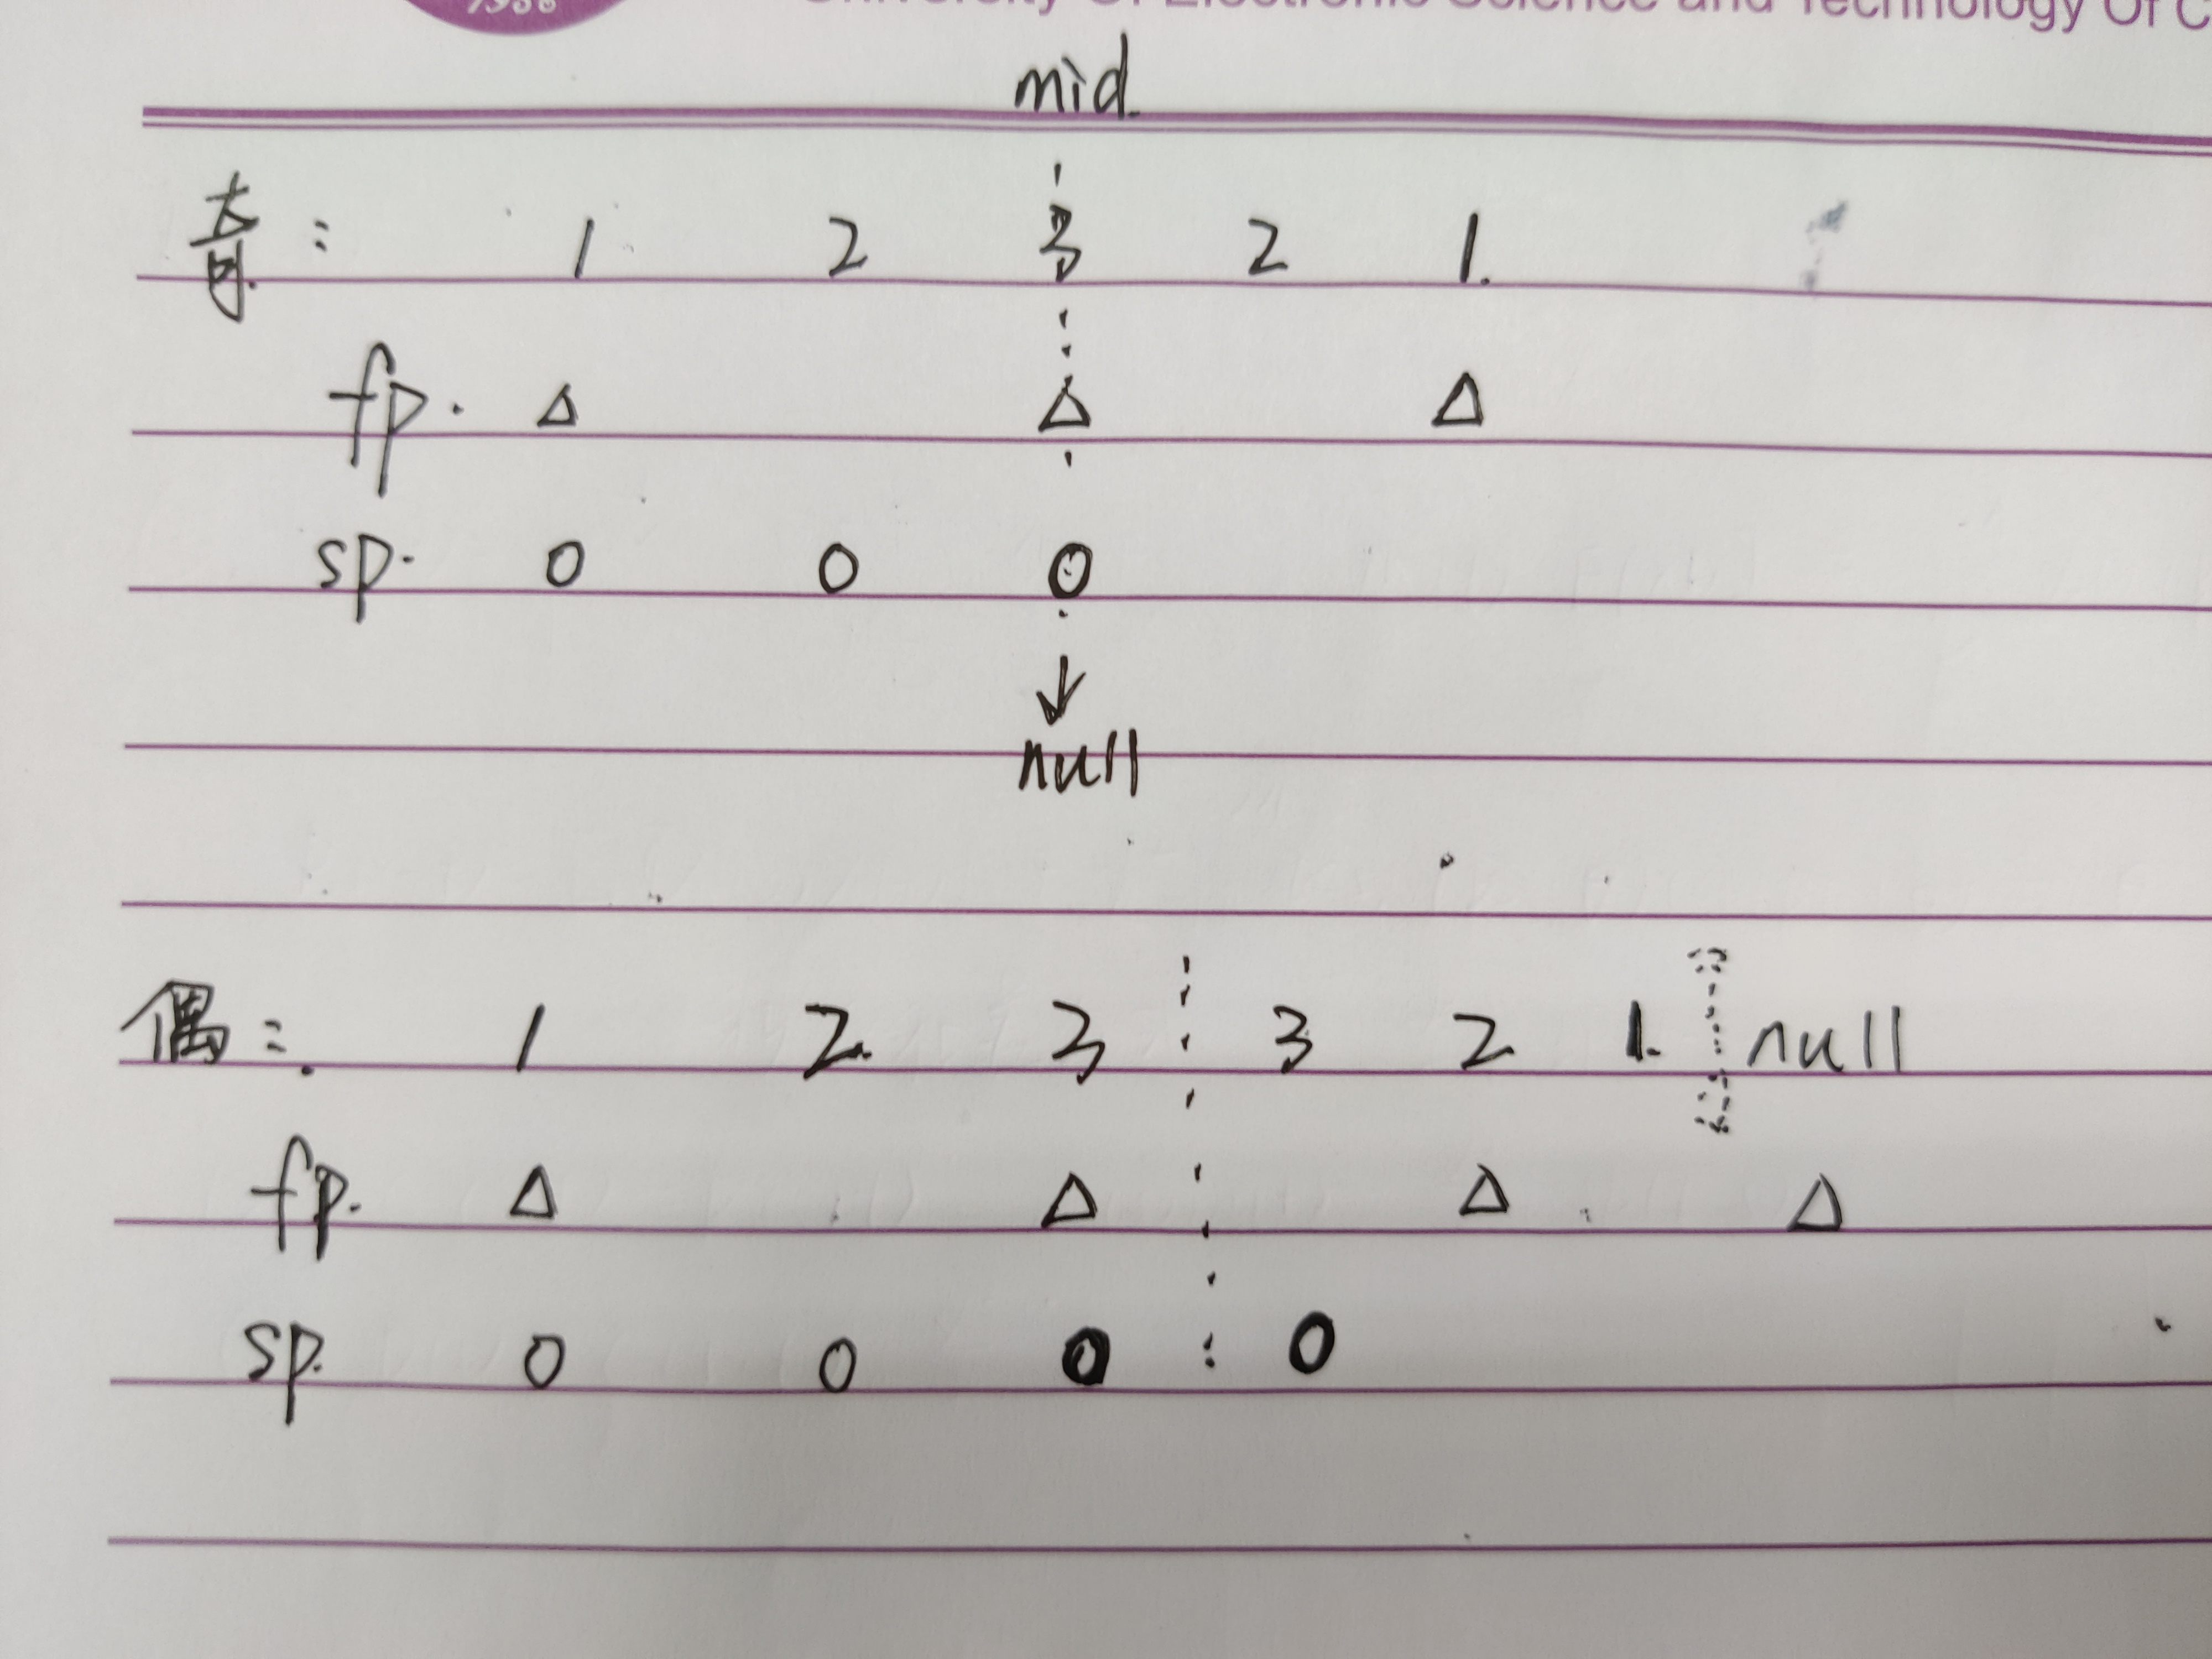 1956
University Of Electronic Science and Technology Of C
mid.
奇: 1 2 3 2 1.
fp. Δ Δ Δ
sp. 0 0 0
↓
null
偶: 1 2. 3 3 2 1. null
fp. Δ Δ Δ Δ
sp. 0 0 0 0